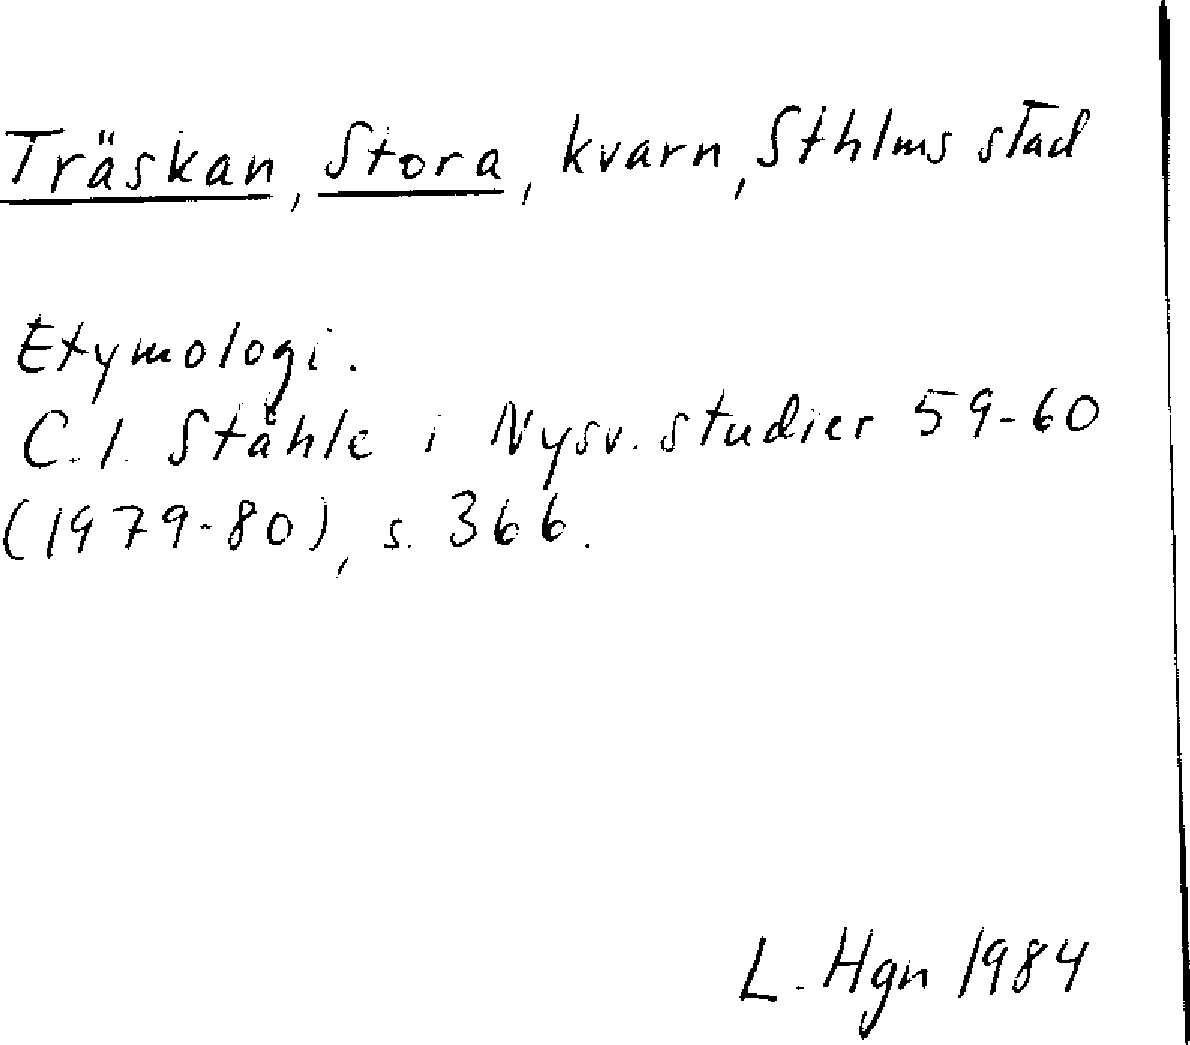 Träskan, Stora, kvarn, Sthlms stad
Etymologi.
C. I. Ståhle i Nysv. studier 59-60
(1979-80), s. 366.
L. Hgn 1984